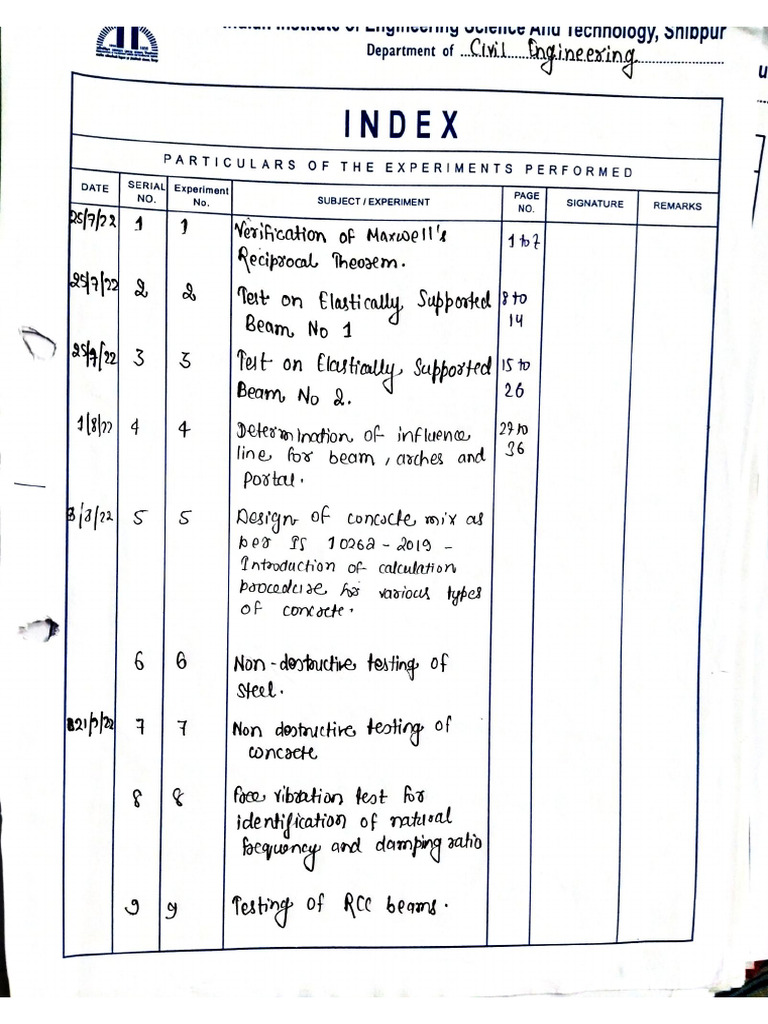 Indian Institute of Engineering Science And Technology, Shibpur
Department of Civil Engineering
INDEX
PARTICULARS OF THE EXPERIMENTS PERFORMED
DATE SERIAL NO. Experiment No. SUBJECT / EXPERIMENT PAGE NO. SIGNATURE REMARKS
25/7/22 1 1 Verification of Maxwell's 1 to 7
Reciprocal Theorem.
25/7/22 2 2 Test on Elastically Supported 8 to
Beam No 1 14
25/7/22 3 3 Test on Elastically Supported 15 to
Beam No 2. 26
1/8/22 4 4 Determination of influence 27 to
line for beam, arches and 36
portal.
5 5 Design of concrete mix as
per IS 10262-2019 -
Introduction of calculation
procedure for various types
of concrete.
6 6 Non-destructive testing of
steel.
7 7 Non destructive testing of
concrete
8 8 Free vibration test for
identification of natural
frequency and damping ratio
9 9 Testing of RCC beams.